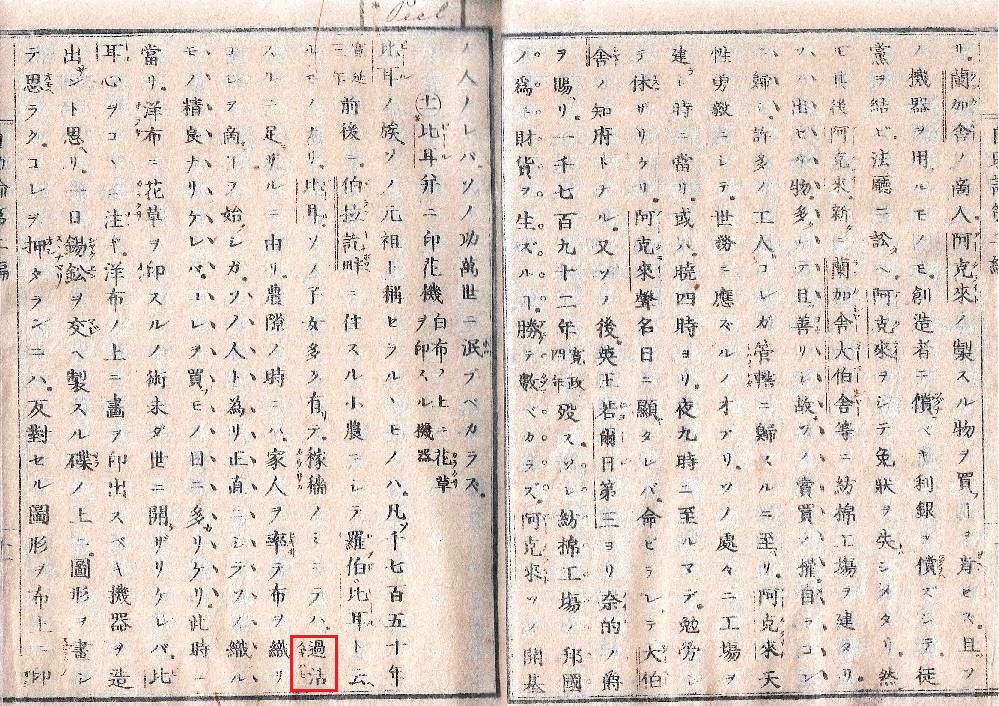 リ。蘭加舎ノ商人阿克來ノ製スル物ヲ買フヿヲ肯セス。且ツソ
ノ機器ヲ用ルモノモ創造者ニ償ベキ利銀ヲ償ズシテ徒
黨ヲ結ビ法廳ニ訟ヘ阿克來ヲシテ免狀ヲ失シメタリ然
モ其後阿克來新ニ蘭加舎大伯舎等ニ紡棉工塲ヲ建タリ
ハ出 物多シテ且善リシ故ソノ賣買ノ權自ラコレ
ニ歸シ許多ノ工人コレガ管轄ニ歸スルニ至リ。阿克來天
性勇毅ニシテ。世務ニ應ズルノオアリソノ處々ニ工塲ヲ
建シ時ニ當リ。或ハ曉四時ヨリ。夜九時ニ至ルマデ。勉勞シ
テ休ザリケリ阿克來聲名日ニ顯タレバ。命ゼラレテ大伯
舎ノ知府トナル。又ソノ後英王若爾日第三ヨリ奈的ノ爵
ヲ賜リ。一千七百九十二年寛政四年歿ス。ソレ紡棉工塲ノ邦國
ノ爲ニ財貨ヲ生ズルヿ勝テ數ベカラズ。阿克來ソノ開基
Peel
ノ人ナレバ。ソノ功萬世ニ泯ブベカラズ。
十一 比耳幷ニ印花機白布ノ上ニ花草ヲ印スル機器
比耳ノ族ソノ元祖ト稱セラルヽモノハ。凡ソ千七百五十年
寛延三年前後ニ伯拉許畔ニ住スル小農ニシテ羅伯比耳ト云
ルモノナリ。比耳ソノ子女多ク有テ。稼穡ノミニテハ。過活
スルニ足ザルニ由リ。農隙ノ時ニハ。家人ヲ率テ布ヲ織リ
コレヲ商フヿヲ始シガ。ソノ人ト爲リ正直ニシテソノ織ル
モノ精良ナリケレバ。コレヲ買フモノ日ニ多カリケリ。此時ニ
當リ。洋布ニ花草ヲ印スルノ術未ダ世ニ開ザリケレバ。比
耳心ヲコヽニ注ギ。洋布ノ上ニ畫ヲ印出スベキ機器ヲ造
出サント思リ。一日錫鉛ヲ交ヘ製スル碟ノ上ニ。圖形ヲ畫シ
テ思ラクコレヲ押タランニハ。反對セル圖形ヲ布上ニ印